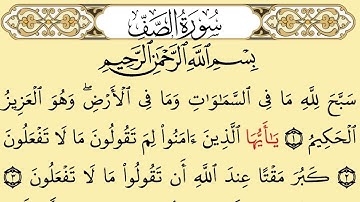 سُورَةُ الصَّفِّ
بِسْمِ اللَّهِ الرَّحْمَٰنِ الرَّحِيمِ
سَبَّحَ لِلَّهِ مَا فِى السَّمَٰوَٰتِ وَمَا فِى الْأَرْضِ ۖ وَهُوَ الْعَزِيزُ
الْحَكِيمُ ۝١ يَٰٓأَيُّهَا الَّذِينَ ءَامَنُوا۟ لِمَ تَقُولُونَ مَا لَا تَفْعَلُونَ
۝٢ كَبُرَ مَقْتًا عِندَ اللَّهِ أَن تَقُولُوا۟ مَا لَا تَفْعَلُونَ ۝٣